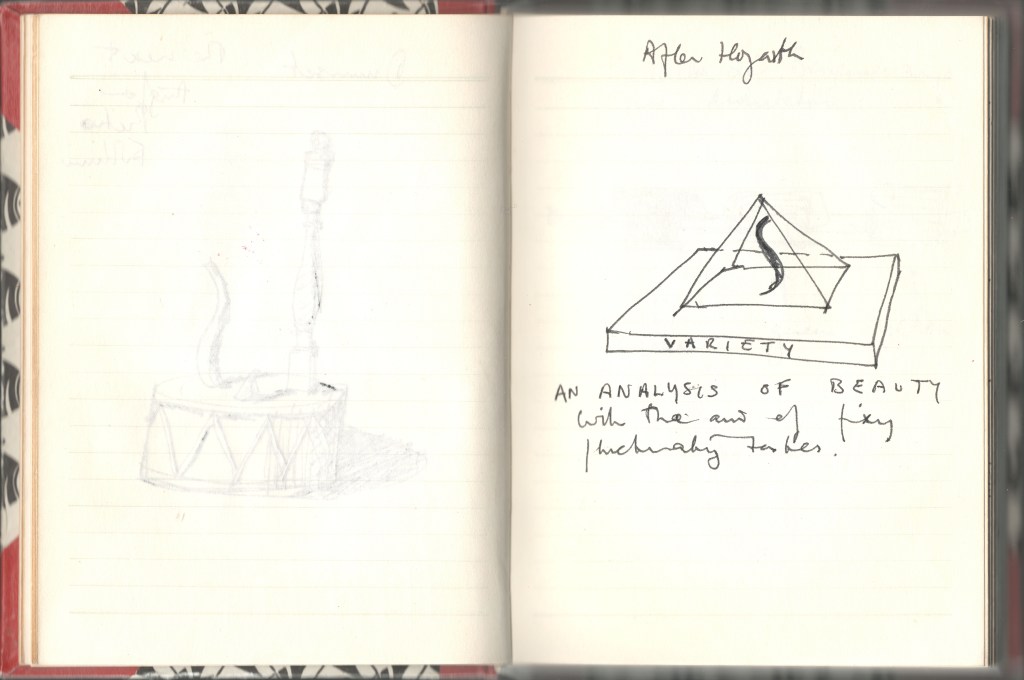 After Hogarth
VARIETY
AN ANALYSIS OF BEAUTY
with the aim of fixing
fluctuating tastes.